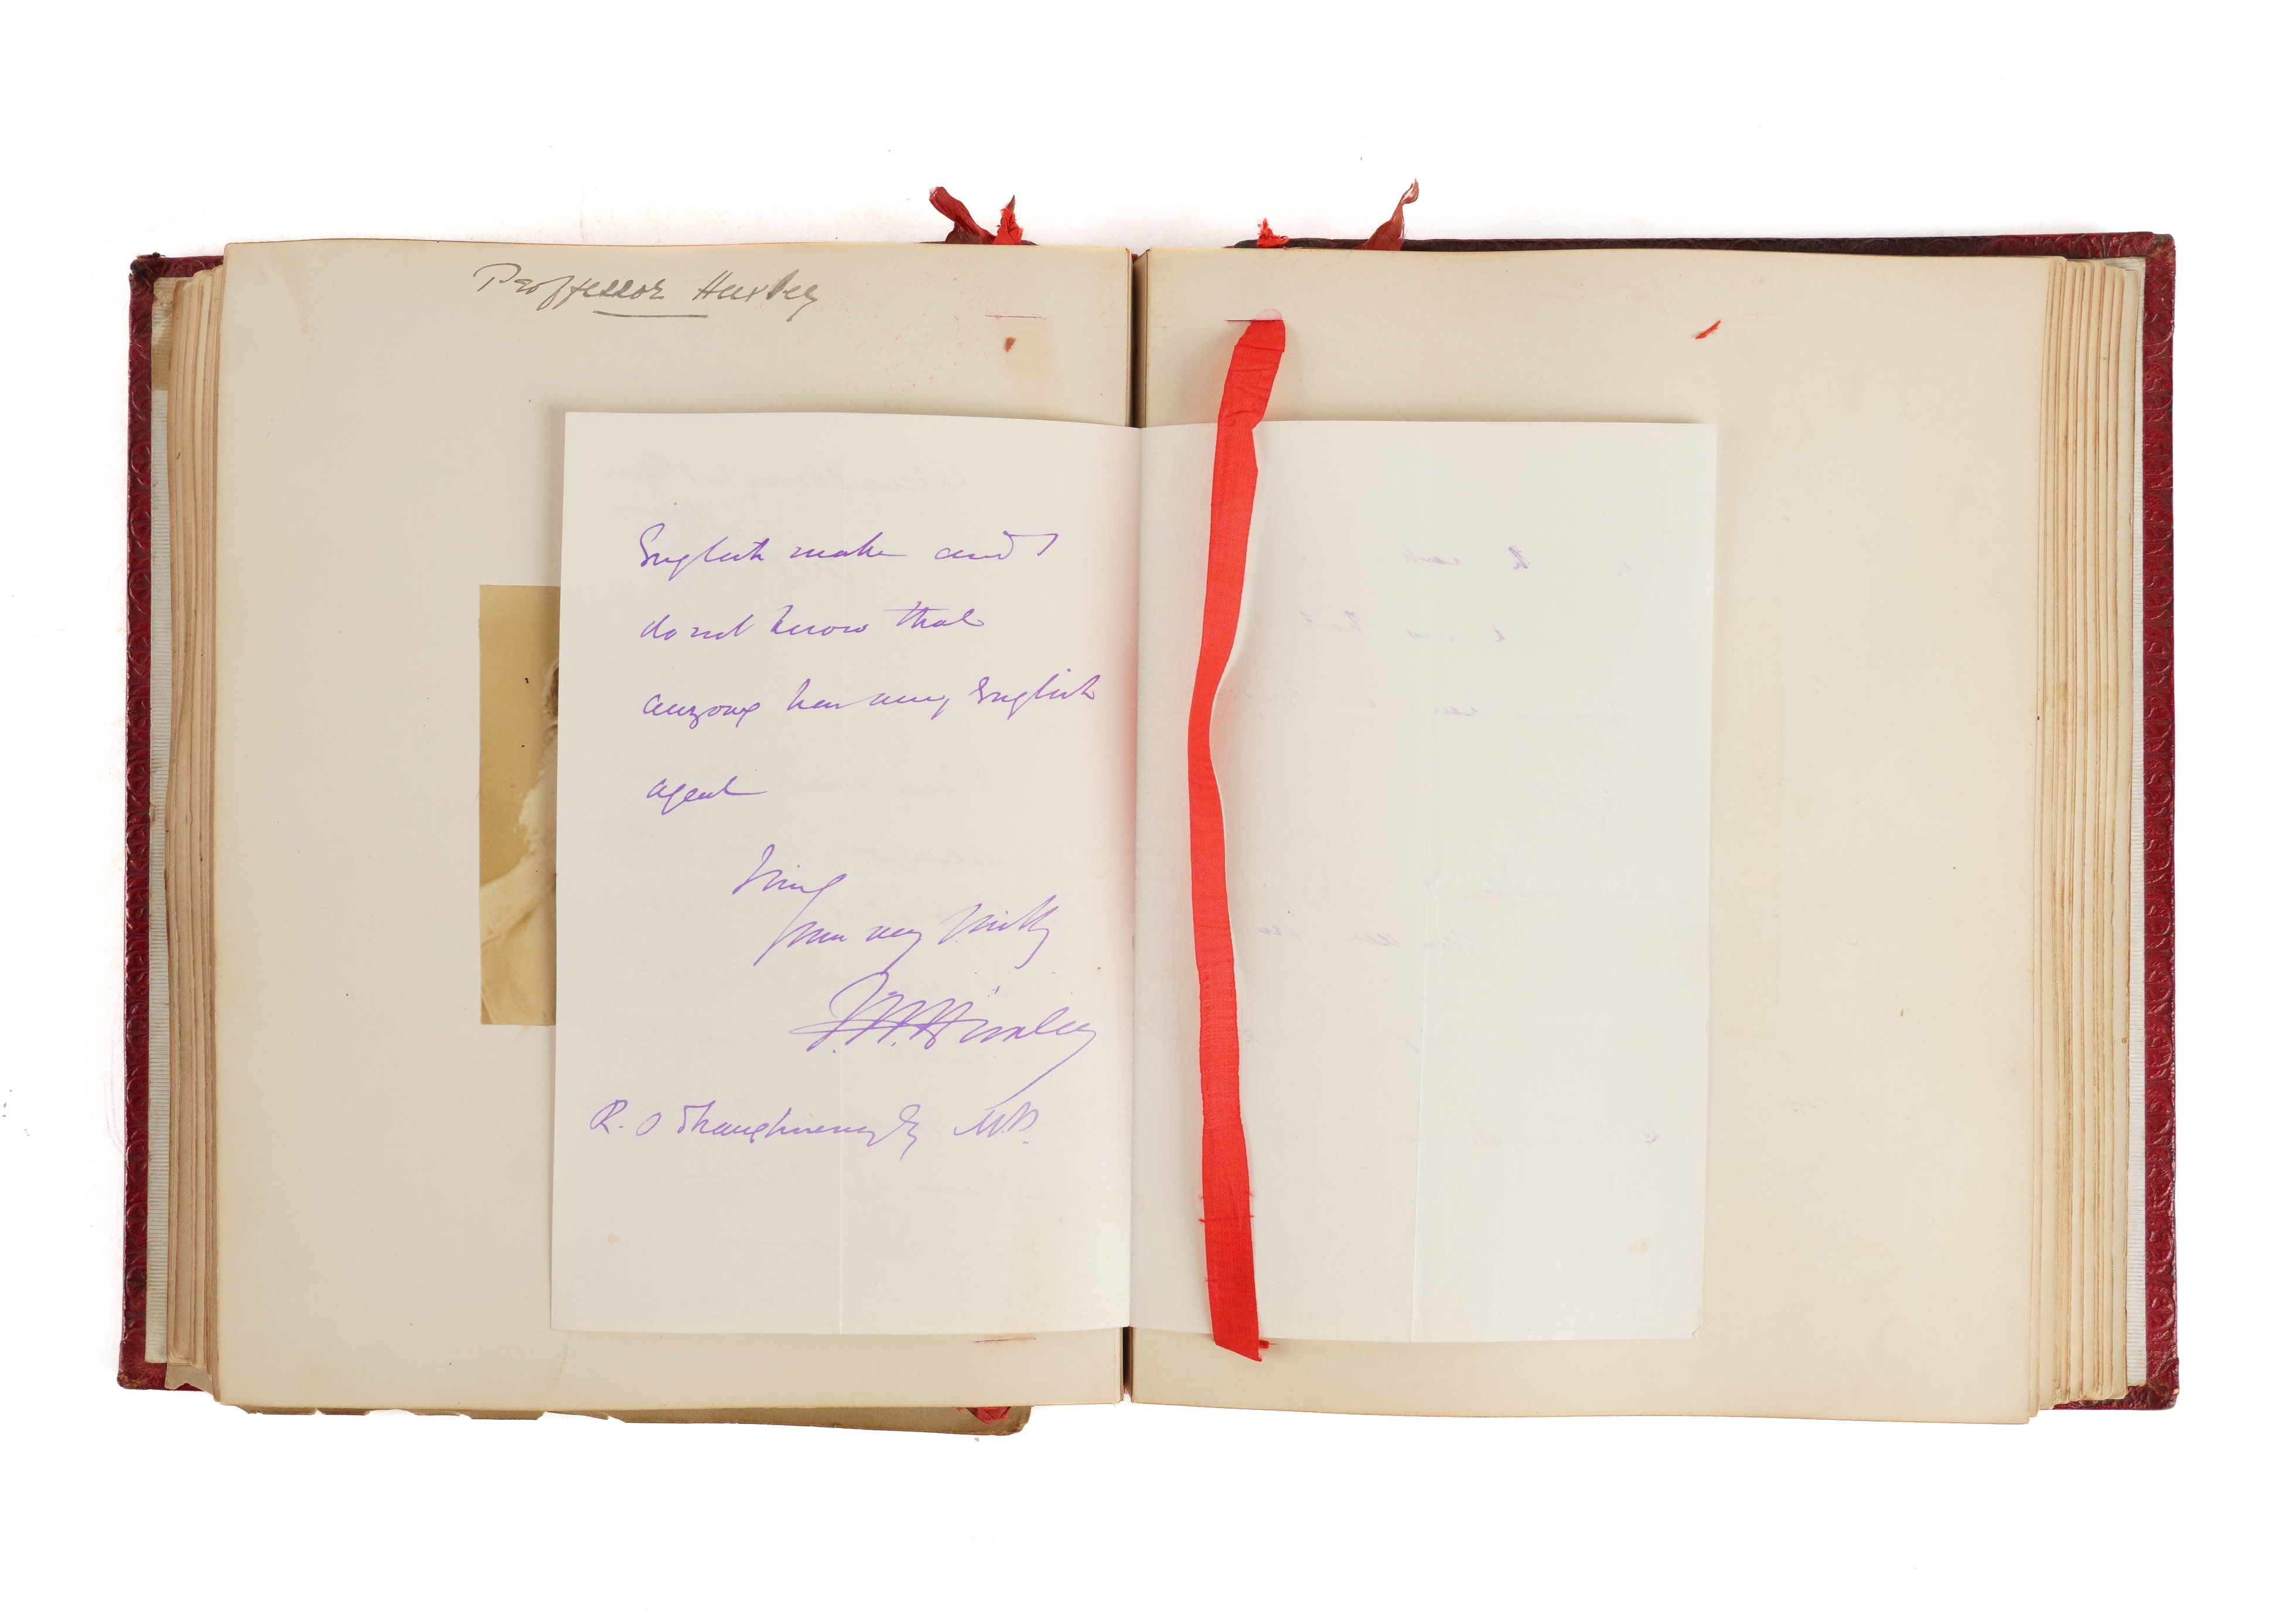 Professor Huxley
English make and I
do not know that
anyone has any English
agent
I am
Yours very truly
T. H. Huxley
R. O'Shaughnessy Esq M.P.